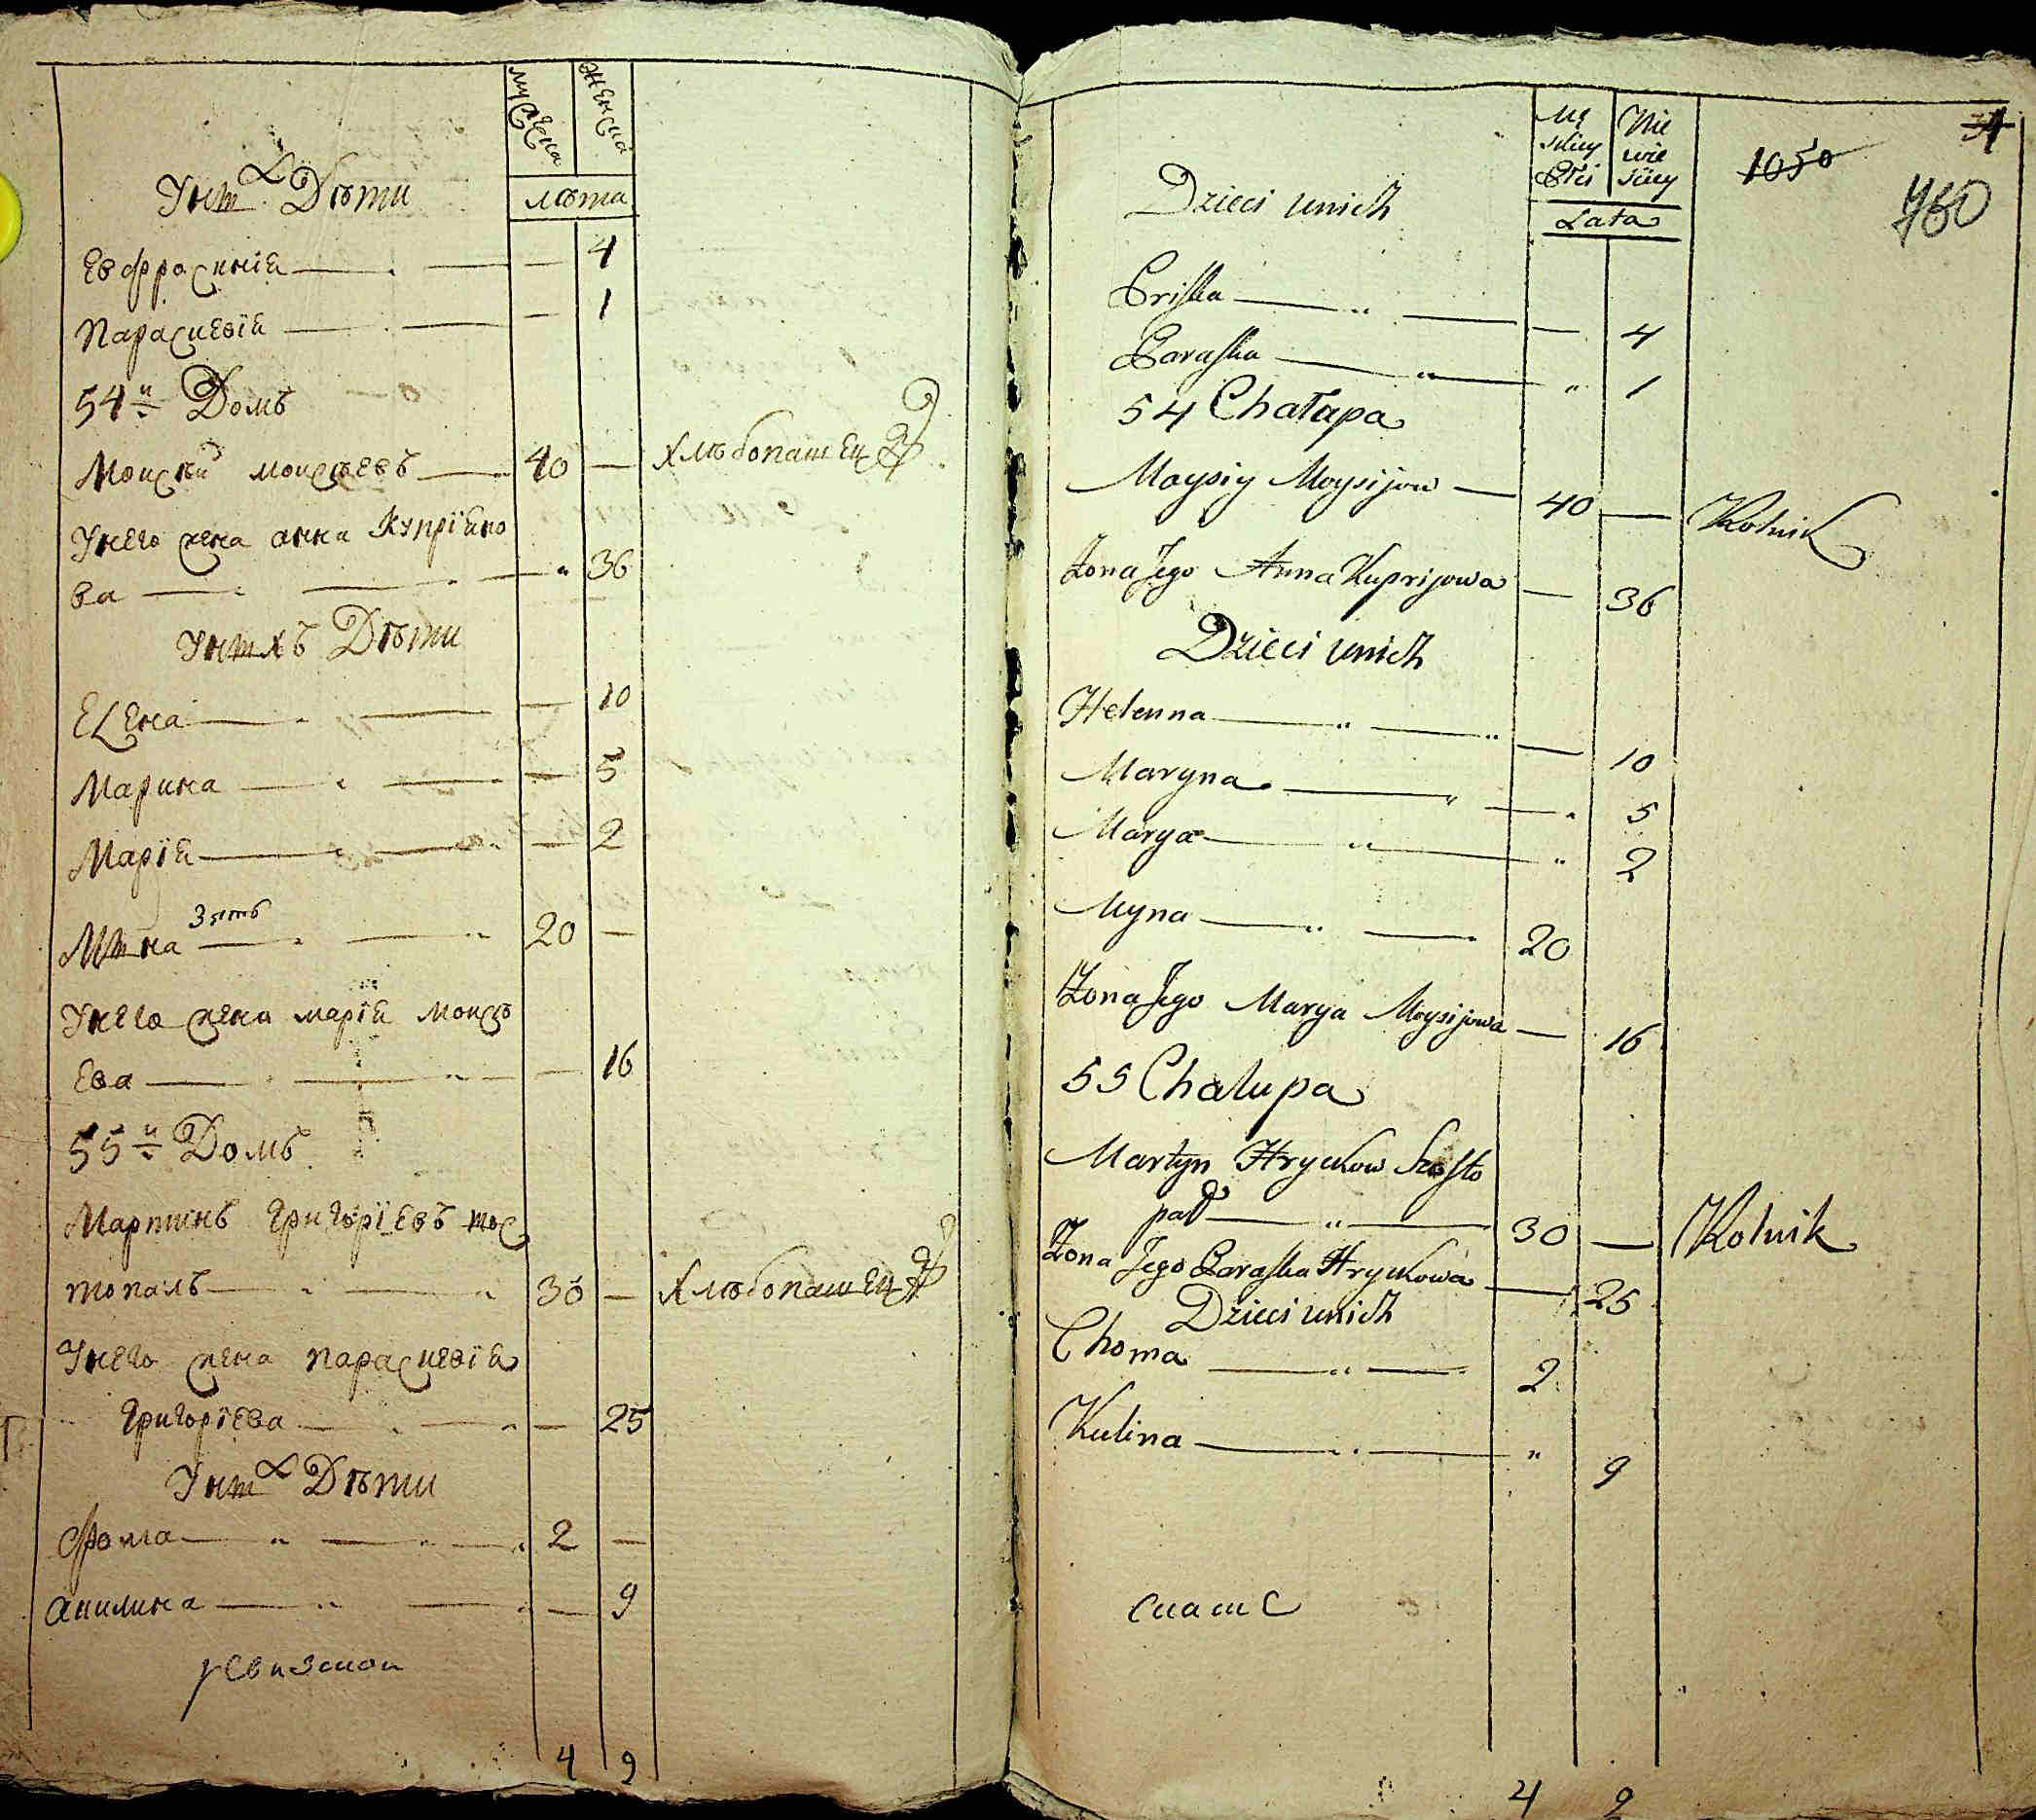 мужеска женска
лѣта
У них Дѣти
Евфросинїя — — — 4
Параскевїя — — — 1
54й Домъ
Моисѣй моисѣевъ — 40 — хлѣбопашец
У него жена анна Купрїяно
ва — — — 36
У нихъ Дѣти
Елена — — — 10
Марина — — — 5
Марїя — — — 2
зять
Мина — — 20 —
У него жена марїя моисѣ
ева — — — 16
55й Домъ
Мартинъ Григорїевъ шос
топалъ — — 30 — хлѣбопашец
У него жена параскевїя
Григорїева — — — 25
У них Дѣти
Фома — — 2 —
Акилина — — — 9
ревизскои
4 9
Mę skiey Płci Nie wie sciey
Lata
1050
760
Dzieci unich
Priska — — — 4
Paraska — — „ 1
54 Chałupa
Moysiy Moysijow — 40 — Rolnik
Żona Jego Anna Kuprijowa — 36
Dzieci unich
Helenna — — — 10
Maryna — — „ 5
Marya — — „ 2
Myna — — 20
Żona Jego Marya Moysijowa — 16
55 Chalupa
Martyn Hryckow Szosto
pał — — 30 — Rolnik
Żona Jego Paraska Hryckowa — 25
Dzieci unich
Choma — — 2
Kulina — — „ 9
сказке
4 9